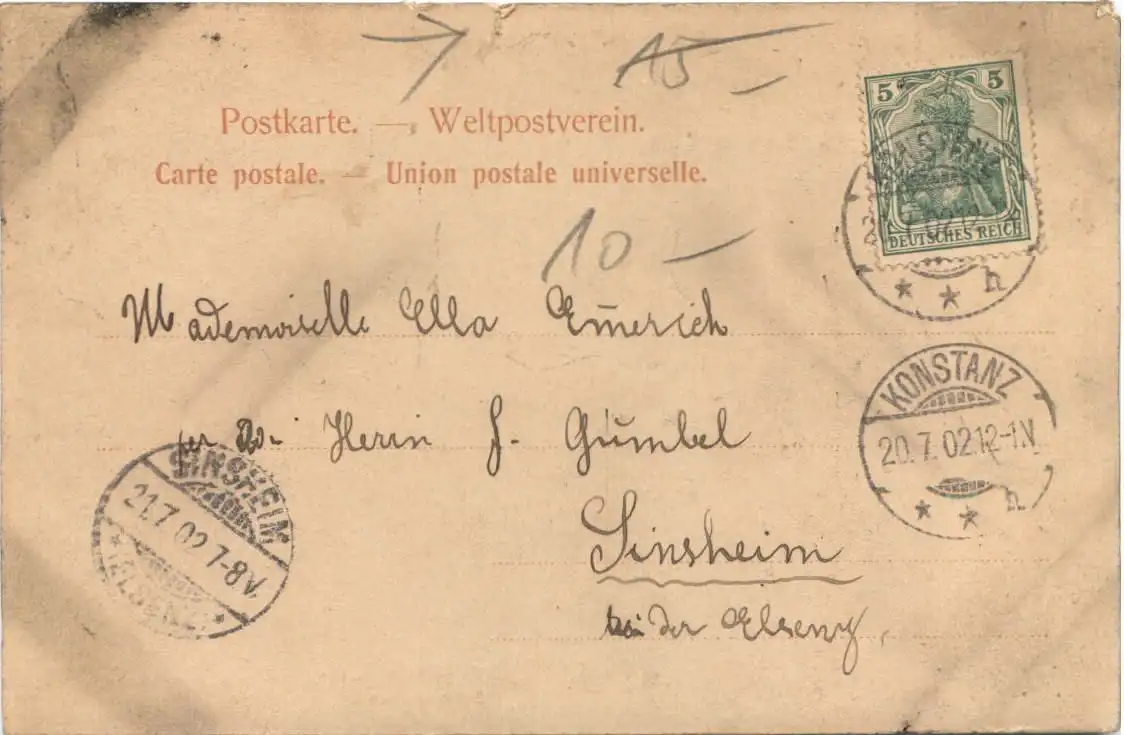 15 –
Postkarte. — Weltpostverein.
Carte postale. — Union postale universelle.
5 5
DEUTSCHES REICH
10 –
Mademoiselle Ella Emerich
KONSTANZ
20.7.02.12-1N
h
Herrn J. Gumbel
SINSHEIM
21.7.02 7-8V.
(ELSENZ)
Sinsheim
bei der Elsenz,